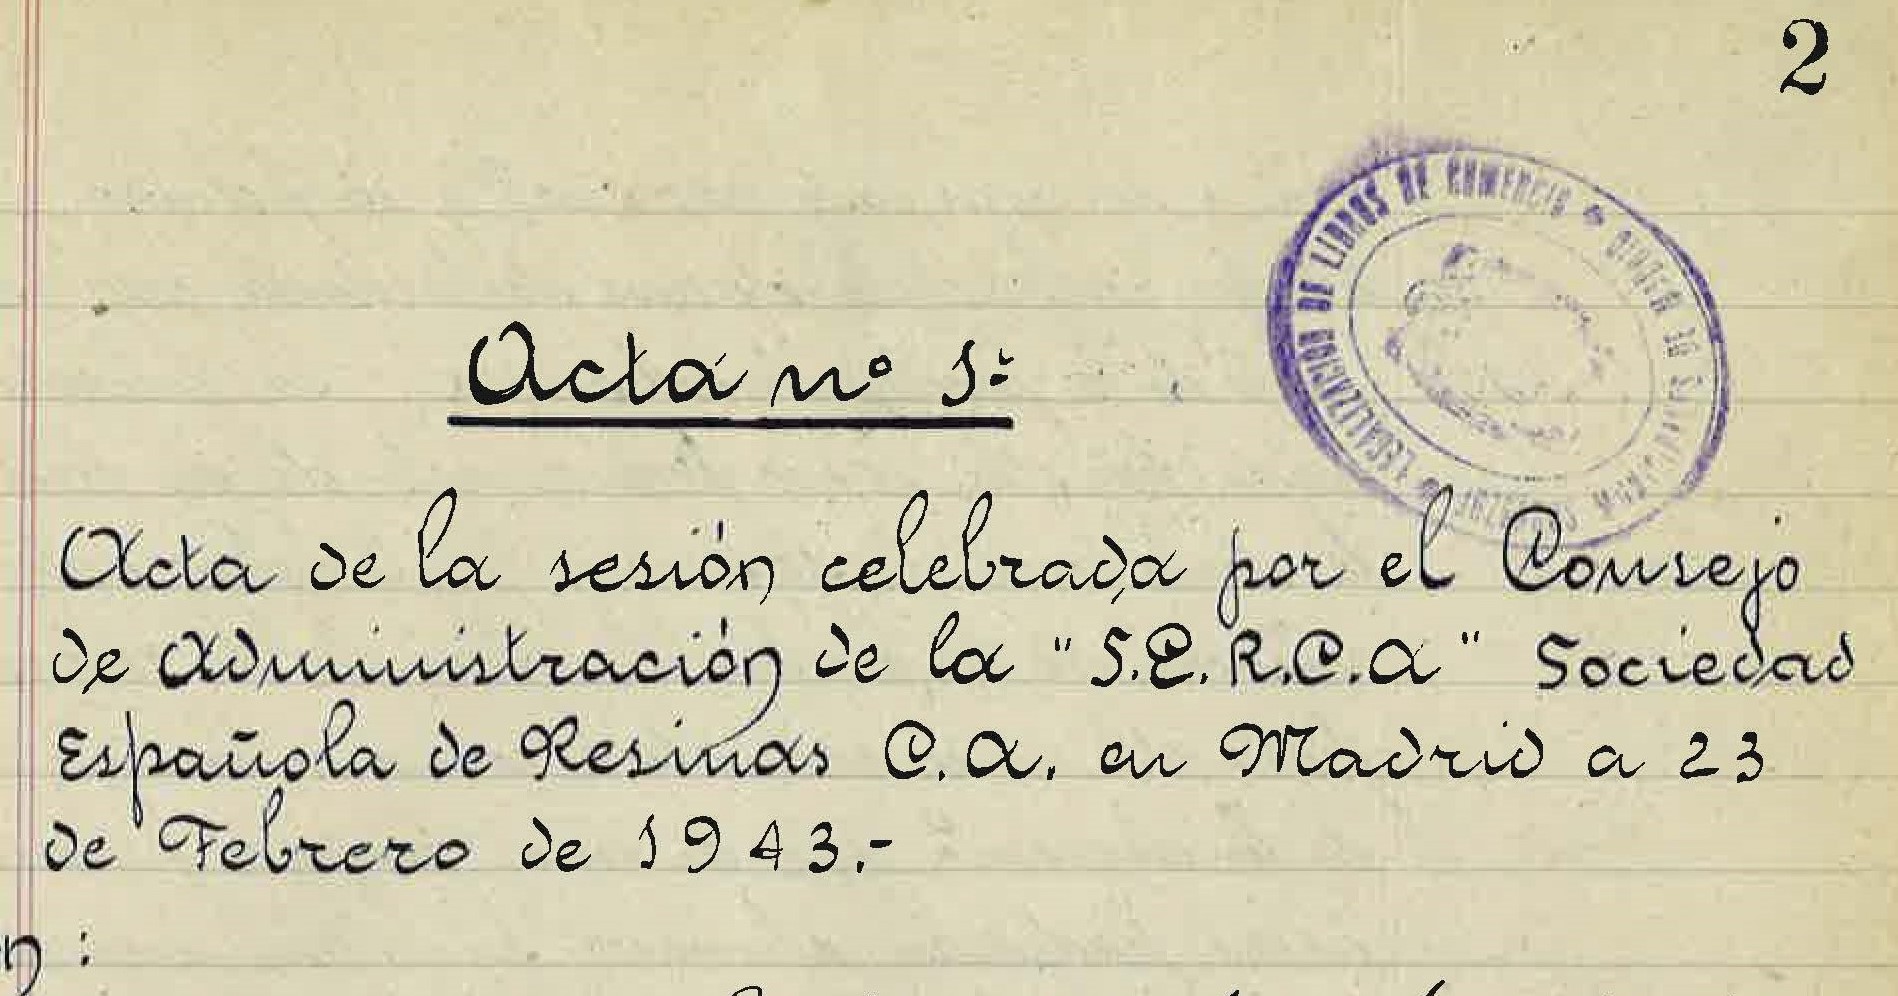 2
LEGALIZACION DE LIBROS DE COMERCIO
Acta nº 1:
Acta de la sesión celebrada por el Consejo
de Administración de la "S.E.R.C.A" Sociedad
Española de Resinas C.A. en Madrid a 23
de Febrero de 1943.-